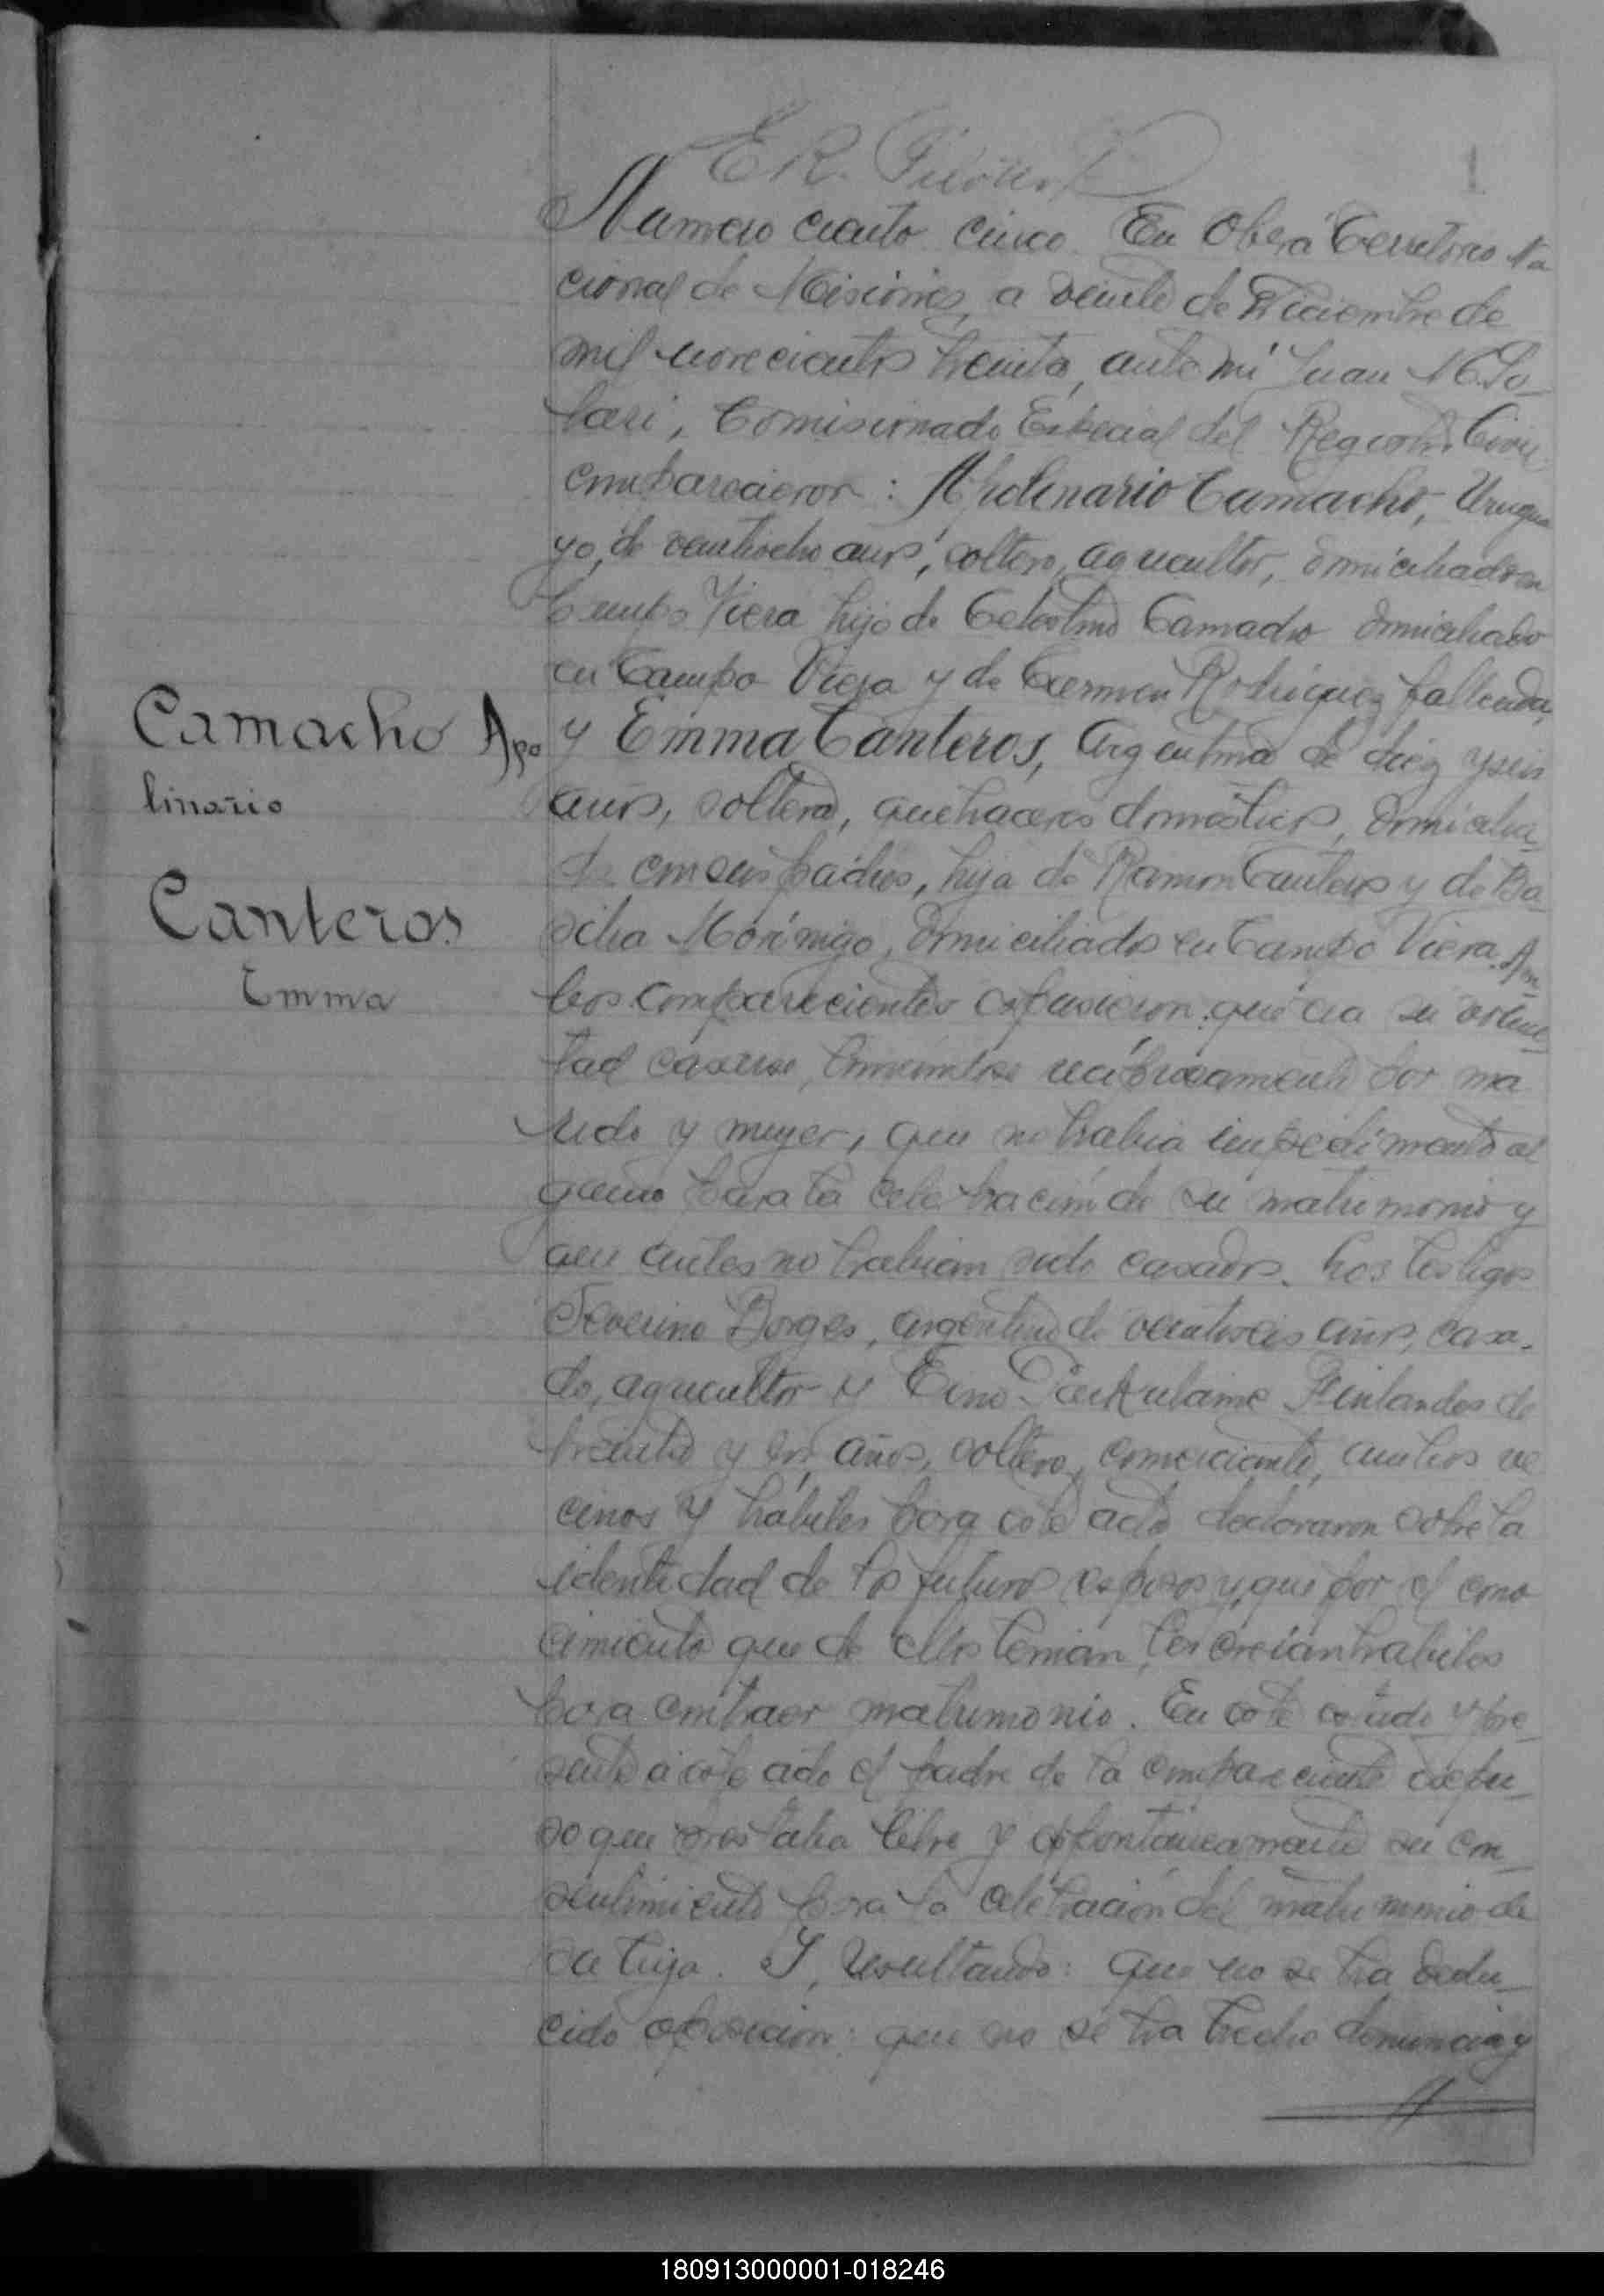 E R.
1
Numero ciento cinco. En Oberá Territorio Na
cional de Misiones, a veinte de Diciembre de
mil novecientos treinta, ante mi Juan M. So-
lari, Comisionado Especial del Registro Civil
comparecieron: Apolinario Camacho, Urugua
yo, de veintiocho años, soltero, agricultor, domiciliado en
Campo Viera hijo de Celestino Camacho domiciliado
en Campo Viera y de Carmen Rodriguez fallecida,
Camacho Apo
linario
y Emma Canteros, Argentina de diez y seis
años, soltera, quehaceres domésticos, domicilia-
Canteros
Emma
da con sus padres, hija de Ramon Canteros y de Ba-
silia Morínigo, domiciliados en Campo Viera. Am-
bos comparecientes expusieron: que era su volun-
tad casarse, tomandose recíprocamente por ma
rido y mujer, que no habia impedimento al
guno para la celebracion de su matrimonio y
que antes no habian sido casados. Los testigos
Severino Borges, argentino de veintiseis años, casa-
do, agricultor y Eino Finlandes de
treinta y años, soltero, comerciante, ambos ve
cinos y hábiles para este acto declararon sobre la
identidad de los futuros esposos y que por el cono
cimiento que de ellos tenian, los creian habiles
para contraer matrimonio. En este estado y pre-
sente a este acto el padre de la compareciente expu-
so que prestaba libre y espontáneamente su con-
sentimiento para la celebración del matrimonio de
su hija. Y, resultando: que no se ha dedu-
cido oposicion: que no se ha hecho denuncia y
180913000001-018246